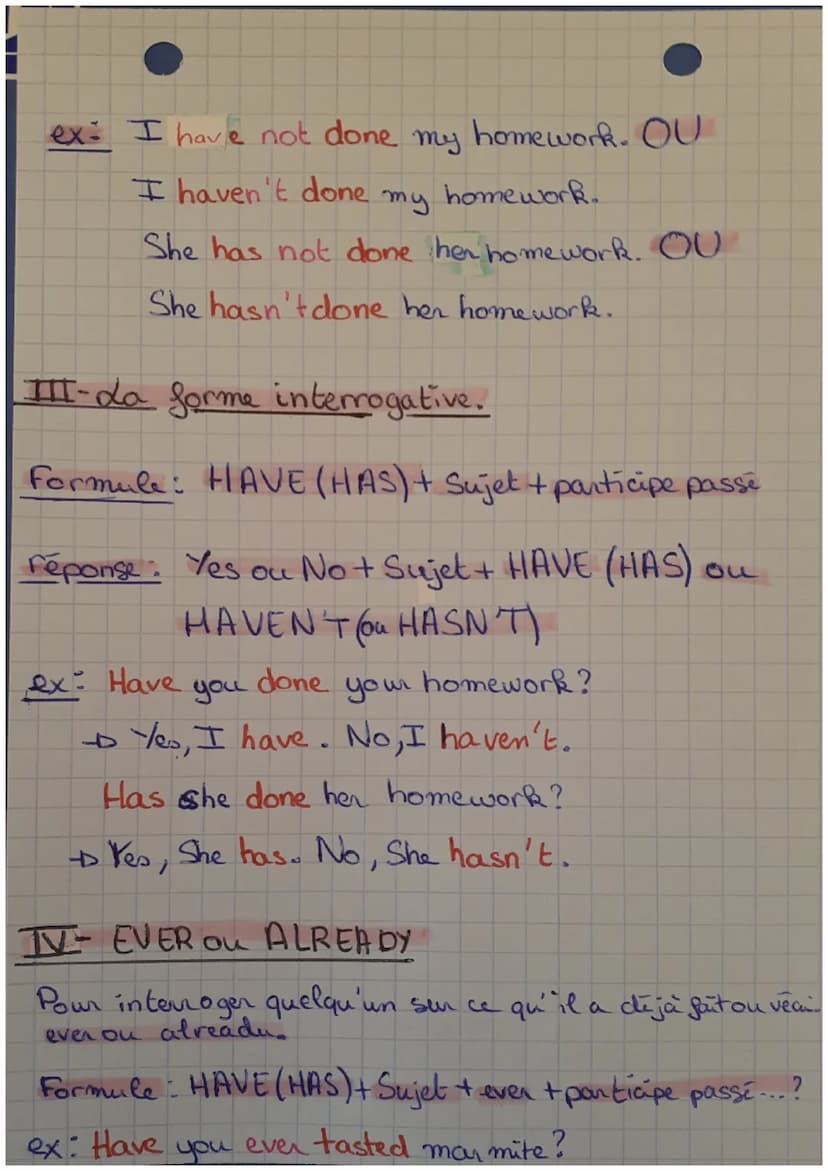 ex: I have not done my homework. OU
I haven't done my homework.
She has not done her homework. OU
She hasn't done her homework.
III- La forme interrogative.
Formule: HAVE (HAS) + Sujet + participe passé
réponse: Yes ou No + Sujet + HAVE (HAS) ou
HAVEN'T (ou HASN'T)
ex: Have you done your homework?
→ Yes, I have. No, I haven't.
Has she done her homework?
→ Yes, She has. No, She hasn't.
IV- EVER ou ALREADY
Pour interroger quelqu'un sur ce qu'il a déjà fait ou
ever ou already.
Formule: HAVE (HAS) + Sujet + ever + participe passé...?
ex: Have you ever tasted marmite?